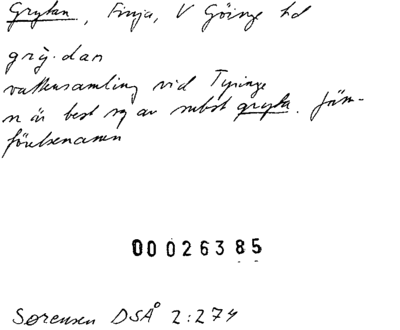 Grytan, Finja, V Göinge hd
grỳ.dan
vattensamling vid Tyringe
n är best sg av subst gryta. Jäm-
förelsenamn
0002638 5
Sørensen DSÅ 2:274